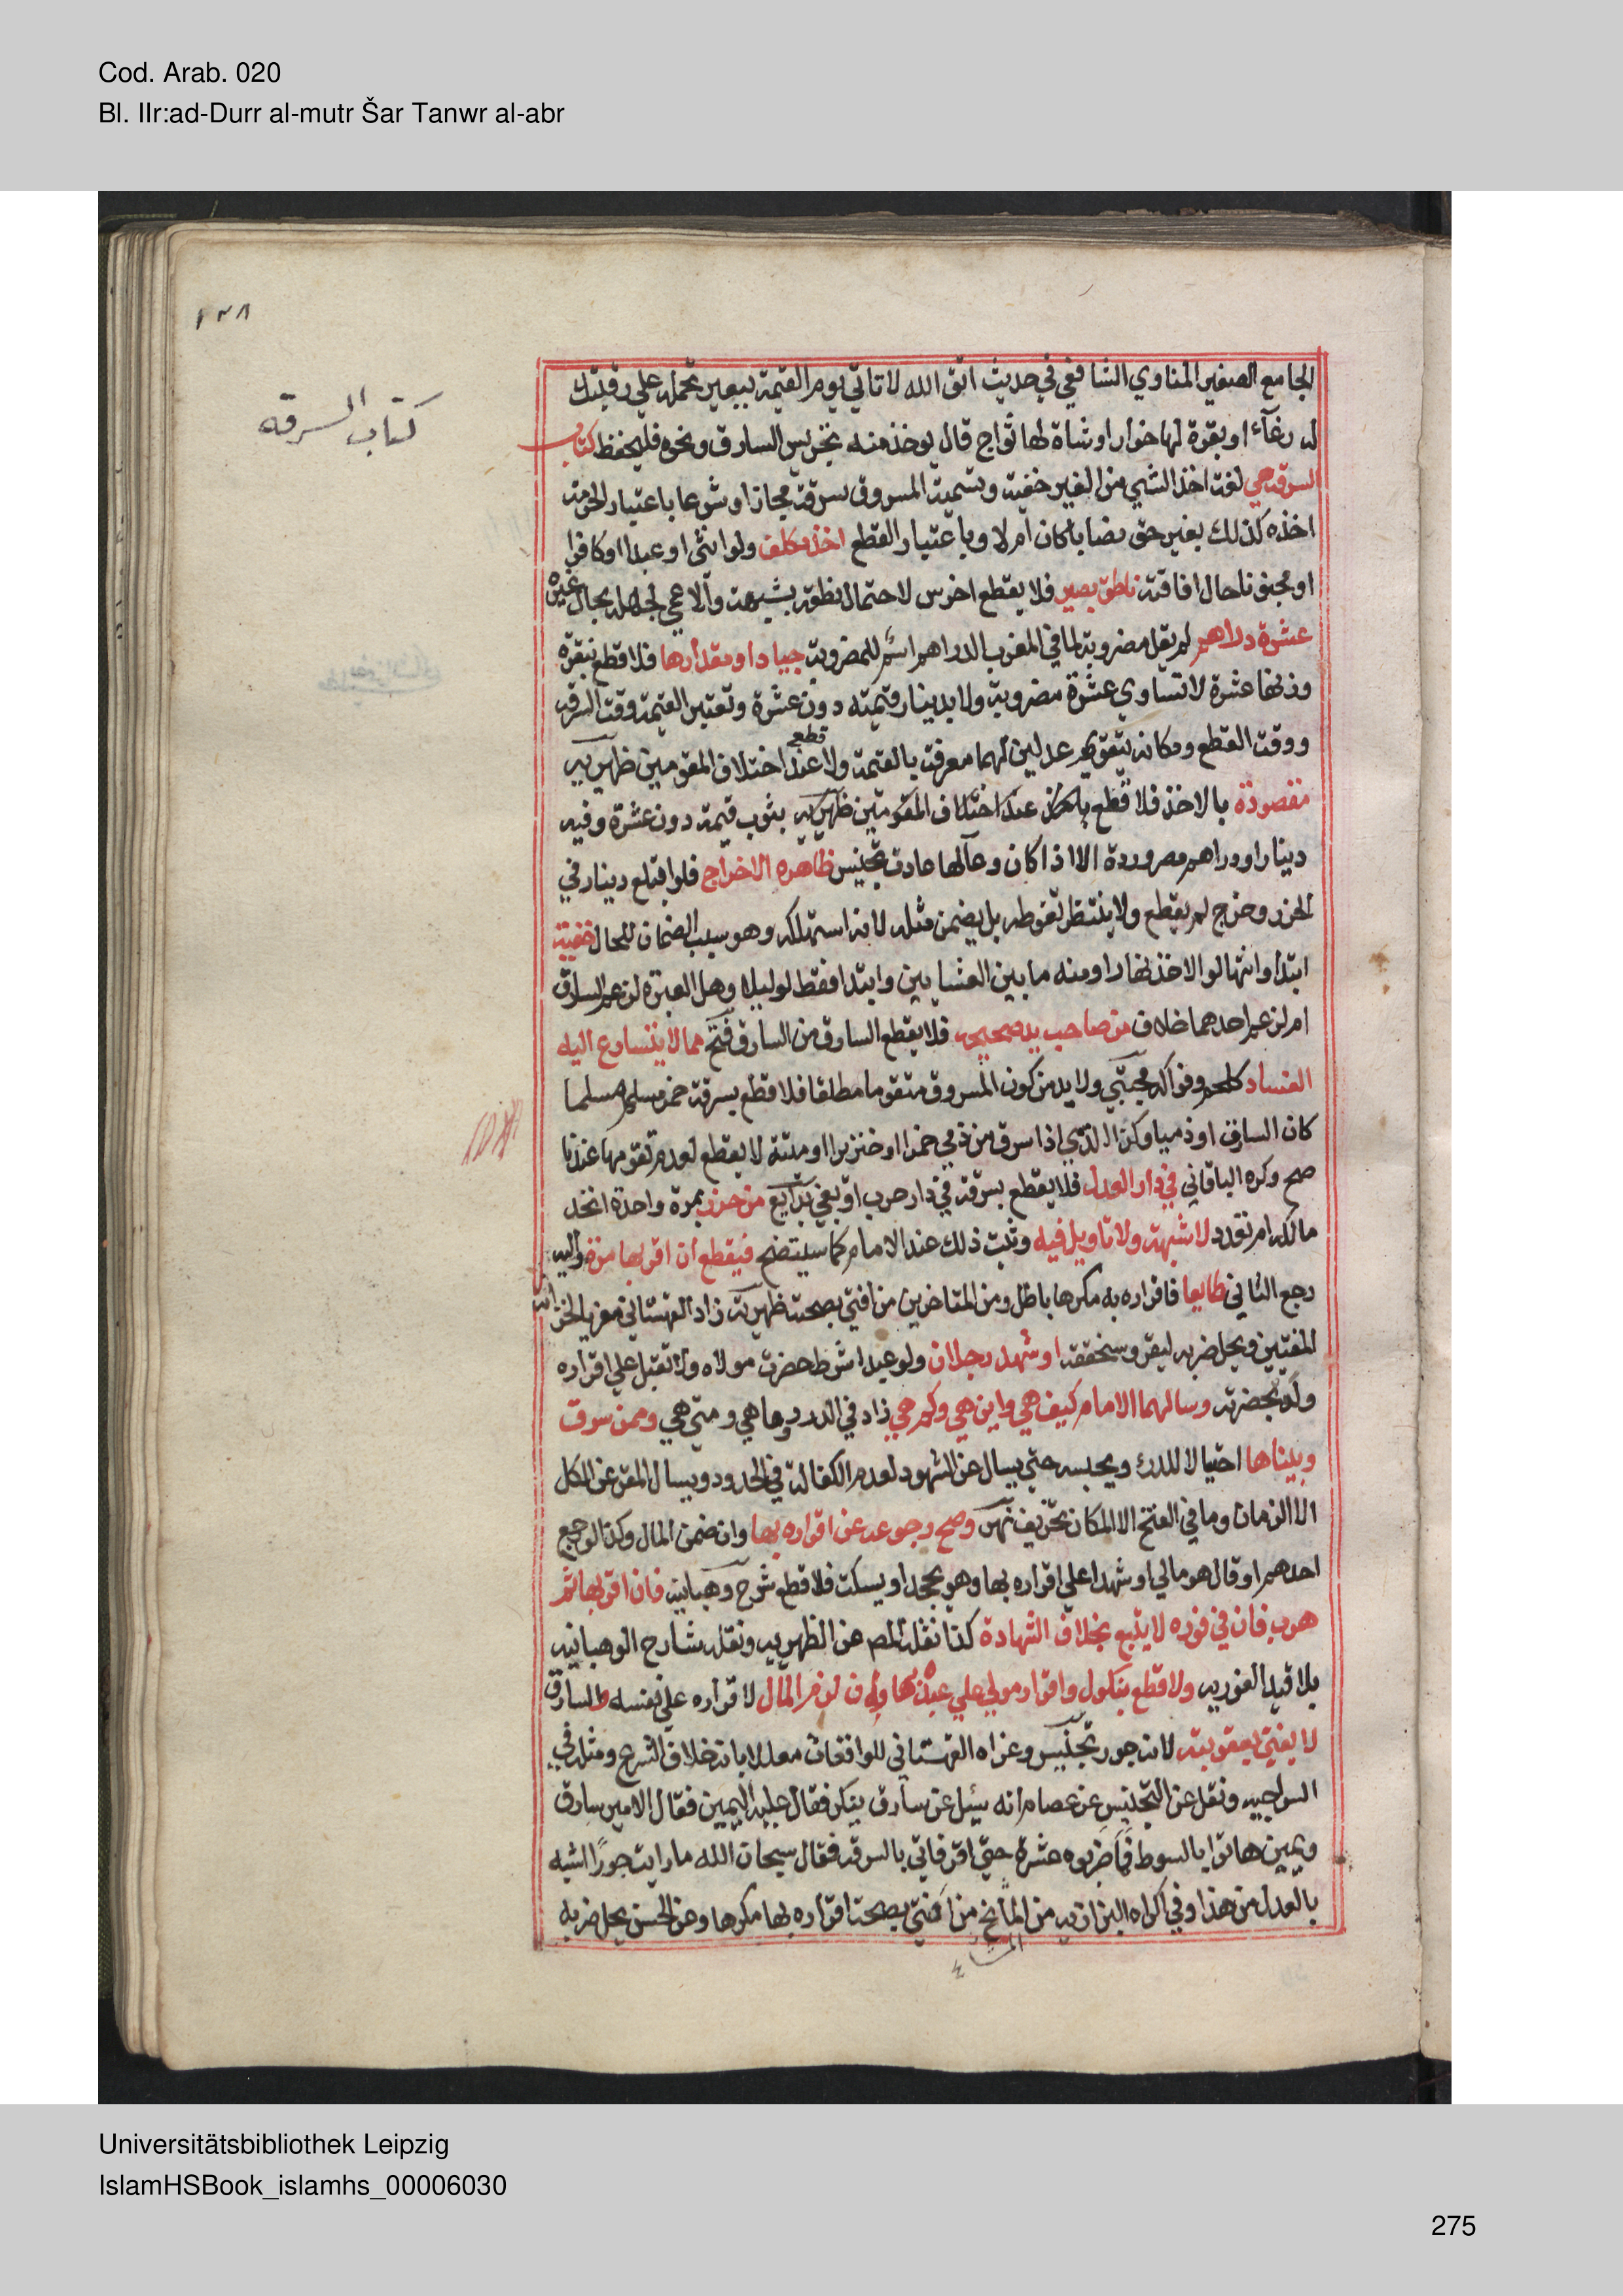 Cod. Arab. 020
Bl. IIr:ad-Durr al-mutr Šar Tanwr al-abr
١٣٨
كتاب السرقه
الجامع الصغير المناوي الشافعي في حديث اتق الله لا تاتي يوم القيمة ببعير تحمله علي رقبتك
له رغآء او بقرة لها خوار او شاة لها ثواج قال يوخذ منه تجريس السارق ونحوه فليحفظ كتاب
السرقة هي لغة اخذ الشي من الغير خفية وتسمية المسروق سرقة مجاز او شرعا باعتبار الحرمة
اخذه كذلك بغير حق نصابا كان ام لا وباعتبار القطع اخذ مكلف ولو انثى او عبدا او كافرا
او مجنونا حال افاقته ناطق بصير فلا يقطع اخرس لاحتمال نطقه بشبهة ولا اعمي لجهله بحال غيره
عشرة دراهم لم يقل مضروبة لما في المغرب الدراهم اسم للمضروبة جياد او مقدارها فلا قطع بنقرة
وزنها عشرة لا تساوي عشرة مضروبة ولا بدينار قيمته دون عشرة وتعتبر القيمة وقت السرقه
ووقت القطع ومكانه بتقويم عدلين لهما معرفة بالقيمة ولا قطع عند اختلاف المقومين ظهيريه
مقصودة بالاخذ فلا قطع عند اختلاف المقومين ظهيريه بثوب قيمة دون عشرة وفيه
دينار او دراهم مصرورة الا اذا كان وعآلها عادة تجنيس ظاهرة الاخراج فلو ابتلع دينار في
الحرز وخرج لم يقطع ولا ينتظر تغوطه بل يضمن مثله لانه استهلكه وهو سبب الضمان للحال خفية
ابتدا وانتها لو الاخذ نهارا ومنه ما بين العشايين وابتدا فقط لو ليلا وهل العبرة لزعم السارق
ام لزعم احدهما خلاف من صاحب يد صحيحه فلا يقطع السارق من السارق فتح مما لا يتسارع اليه
الفساد كلحم وفواكه مجتبي ولا بد من كون المسروق متقوما مطلقا فلا قطع بسرقة خمر مسلم مسلما
كان السارق او ذميا وكذا الذمي اذا سرق من ذمي خمرا او خنزيرا او ميتة لا يقطع لعدم تقومها عندنا
صح وكره الباقاني في دار العدل فلا يقطع بسرقة في دار حرب او بغي بدآيع من حرز بمرة واحدة اتحد
مالكه ام تعدد لا شبهة ولا تاويل فيه وثبت ذلك عند الامام كما سيتضح فيقطع ان اقر بها مرة واليه
رجع الثاني طايعا فاقراره به مكرها باطل ومن المتاخرين من افتي بصحته ظهيريه زاد القهستاني معزيا لخزانة
المفتيين ويحل ضربه ليقر وسنحققه او شهد رجلان ولو عبدا شرط حضرة مولاه ولا تقبل علي اقراره
ولو بحضرته وسالهما الامام كيف هي واين هي وكم هي زاد في الدرر وما هي ومتي هي وممن سرق
وبيناها احتيالا للدرء ويحبسه حتي يسال عن الشهود لعدم الكفالة في الحدود ويسال المقر عن الكل
الا الزمان وما في الفتح الا المكان تحريف نهر وصح رجوعه عن اقراره بها وان ضمن المال وكذا لو رجع
احدهم او قال هو مالي او شهدا علي اقراره بها وهو يجحد او يسكت فلا قطع شرح وهبانيه فان اقر بها ثم
هرب فان في فوره لا يتبع بخلاف الشهادة كذا نقله المص عن الظهيريه ونقله شارح الوهبانيه
بلا قيد الفوريه ولا قطع بنكول واقرار مولي علي عبده بها وان لزم المال لاقراره علي نفسه والسارق
لا يفتي بعقوبته لانه جور تجنيس وعزاه القهستاني للواقعات معللا بانه خلاف الشرع ومثله في
السراجيه ونقل عن التجنيس عن عصام انه سئل عن سارق ينكر فقال عليه اليمين فقال الامير سارق
ويمين هاتوا بالسوط فما ضربوه عشرة حتي اقر فاتي بالسرقه فقال سبحان الله ما رايت جورًا اشبه
بالعدل من هذا وفي اكراه البزازيه من المآيخ من افتي بصحة اقراره بها مكرها وعن الحسن يحل ضربه
Universitätsbibliothek Leipzig
IslamHSBook_islamhs_00006030
275